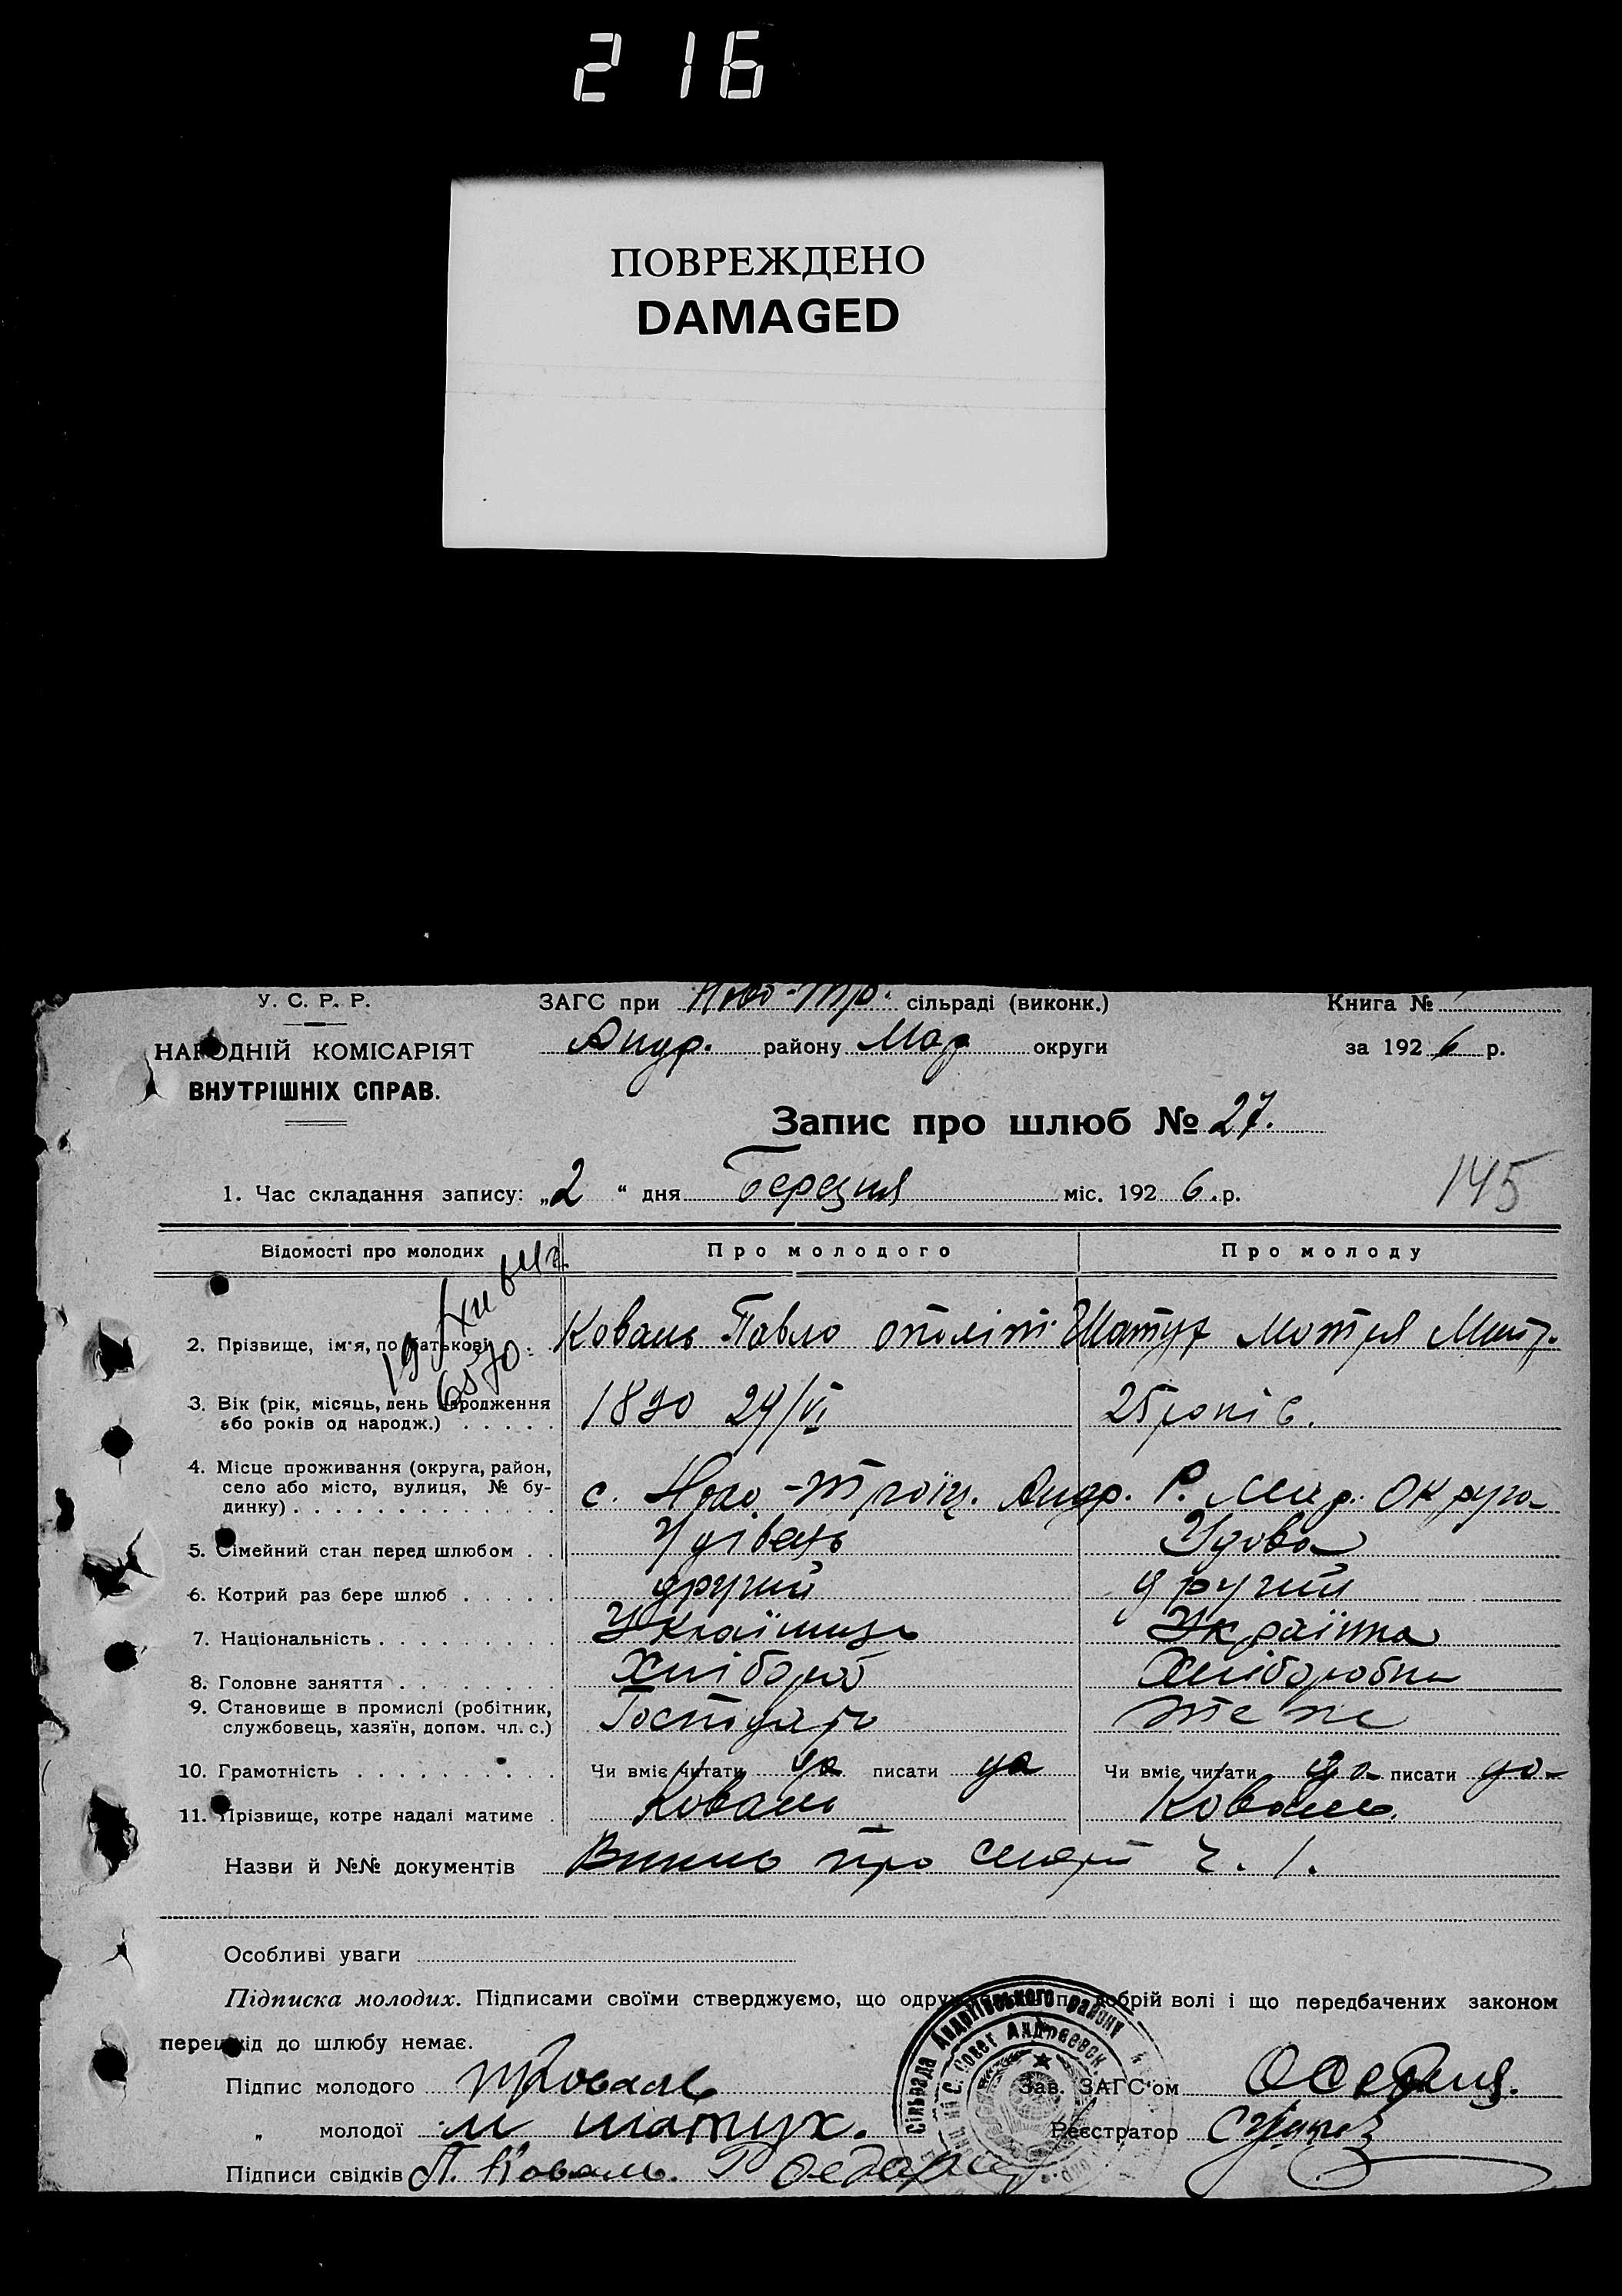 2 16
ПОВРЕЖДЕНО
DAMAGED
У. С. Р. Р.
ЗАГС при Ново-Тр. сільраді (виконк.)
Книга №
НАРОДНІЙ КОМІСАРІЯТ
Андр. району Мар округи
за 1926 р.
ВНУТРІШНІХ СПРАВ.
Запис про шлюб № 27.
1. Час складання запису: „2 “ дня Березня міс. 1926.р.
145
Відомості про молодих
Про молодого
Про молоду
2. Прізвище, ім'я, по батькові
Коваль Павло
Шатух Мотря
3. Вік (рік, місяць, день народження
або років од народж.)
1890 29/VI
25 років.
4. Місце проживання (округа, район,
село або місто, вулиця, № бу-
динку)
с. Ново-Троїц. Андр. Р. Мар. Округа
5. Сімейний стан перед шлюбом
Удівець
Удова
6. Котрий раз бере шлюб
другий
другий
7. Національність
Українець
Українка
8. Головне заняття
Хлібороб
Хліборобка
9. Становище в промислі (робітник,
службовець, хазяїн, допом. чл. с.)
Господарь
теж
10. Грамотність
Чи вміє читати да писати да
Чи вміє читати да писати да
11. Прізвище, котре надалі матиме
Коваль
Коваль.
Назви й №№ документів
про смерть ч. 1.
Особливі уваги
Підписка молодих. Підписами своїми стверджуємо, що по добрій волі і що передбачених законом
перешкід до шлюбу немає.
Підпис молодого
Коваль
Зав. ЗАГС'ом
„ молодої М Шатух.
Реєстратор
Підписи свідків П. Коваль.
Сільрада Андріївського району
С. Совет Андреевск.